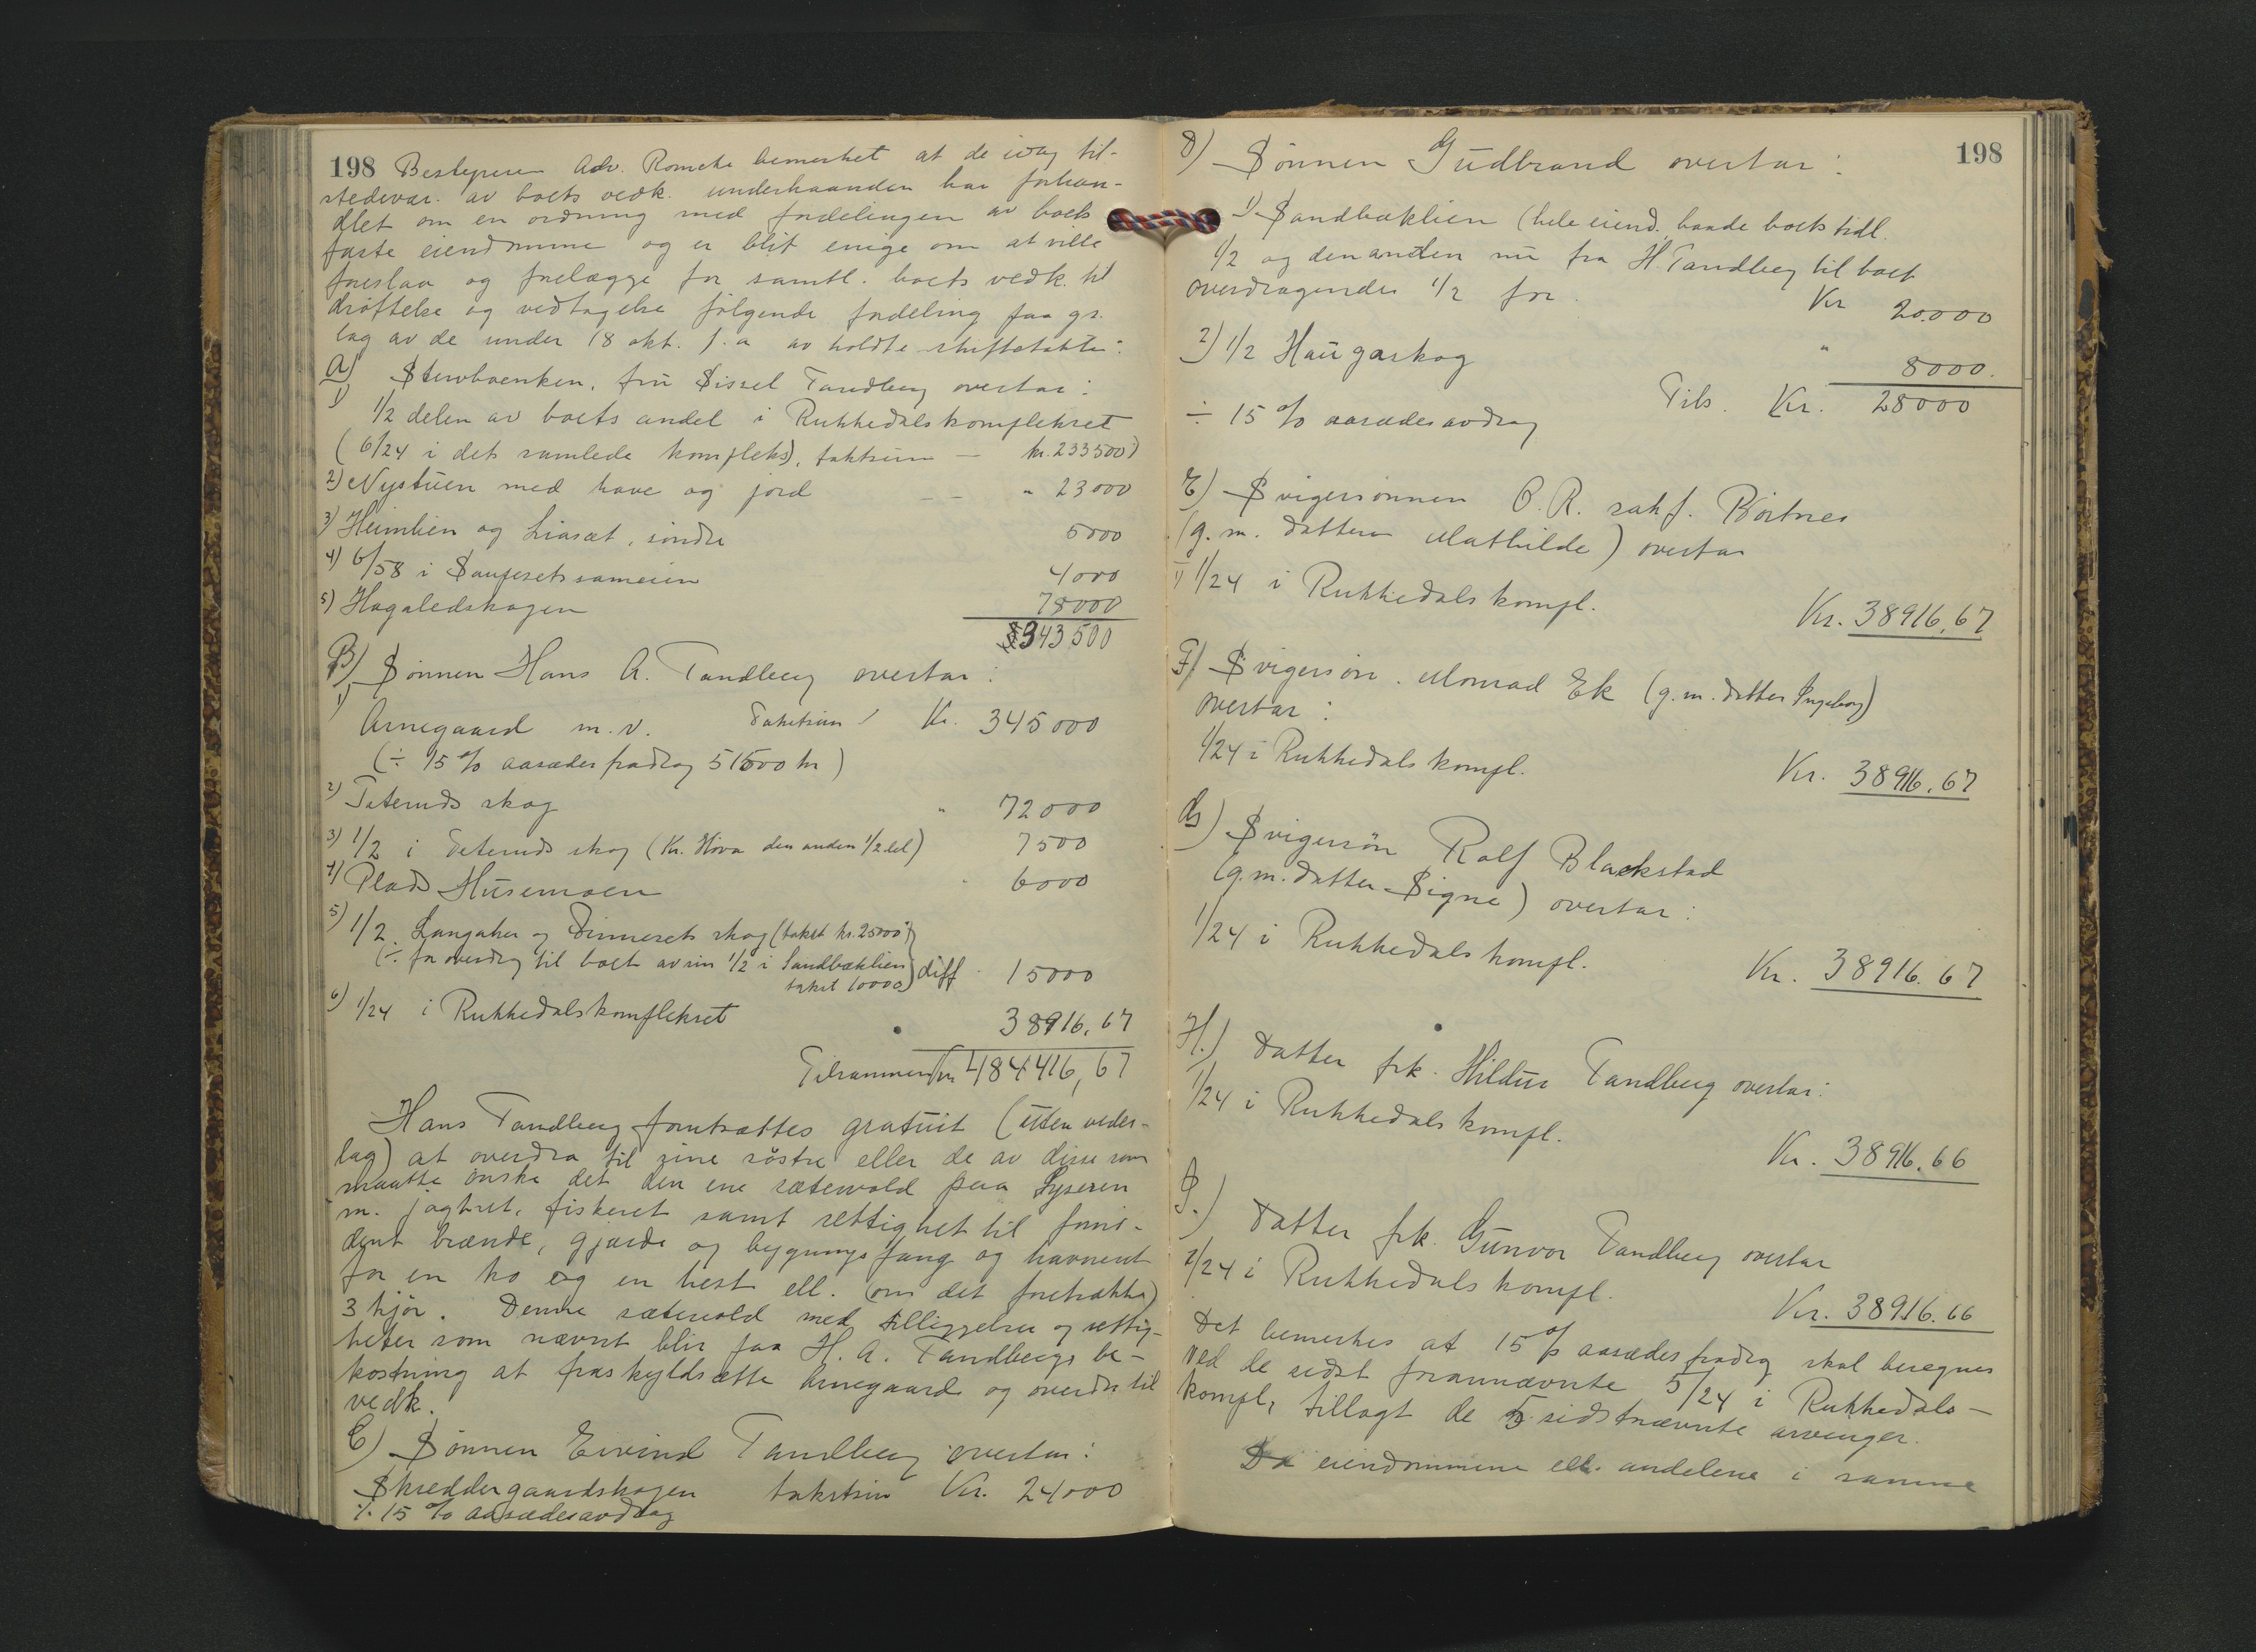 198 Bestyreren Adv. Romcke bemerket at de idag til-
stedevær. av boets vedk. underhaanden har forhan-
dlet om en ordning med fordelingen av boets
faste eiendomme og er blit enige om at ville
foreslaa og forelægge for samtl. boets vedk. til
drøftelse og vedtagelse følgende fordeling paa gr.
lag av de under 18 okt. f. a. avholdte skiftetakster:
A) Stervboenken, fru Sissel Tandberg overtar:
1) 1/2 delen av boets andel i Rukkedalskomplekset
(6/24 i det samlede kompleks), taktsum — kr. 233500)
2) Nystuen med have og jord — — " 23000
3) Heimlien og Liasæt, søndre 5000
4) 6/58 i sameien 4000
5) Hagaledskogen 78000
343500
B) Sønnen Hans A. Tandberg overtar:
1) Arnegaard m. v. Takstsum Kr. 345000
(÷ 15 % aasædesfradrag 51500 kr)
2) Teteruds skog " 72000
3) 1/2 i Teteruds skog (Kr. Hova den anden 1/2 del) 7500
4) Plads Husemoen 6000
5) 1/2 Langaker og skog (takst kr. 25000)
(÷ for overdrag til boet av sin 1/2 i Sandbæklien diff 15000
takst 10000)
6) 1/24 i Rukkedalskomplekset 38916,67
Tilsammen Kr 484416,67
Hans Tandberg foruts­ættes gratuit (uten veder-
lag) at overdra til sine søstre eller de av disse som
maatte ønske det den ene sætervold paa Syseren
m. jagtret, fiskeret samt rettighet til fornø-
dent brænde, gjærde og bygningsfang og havneret
for en ko og en hest ell. (om det foretrækkes)
3 kjør. Denne sætervold med tilliggelser og rettig-
heter som nævnt blir paa H. A. Tandbergs be-
kostning at fraskyldsætte Arnegaard og overdra til
vedk.
C) Sønnen Eivind Tandberg overtar:
Skreddergaardskogen takstsum Kr. 24000
÷ 15 % aasædesavdrag
198
D) Sønnen Gudbrand overtar:
1) Sandbæklien (hele eiend. baade boets tidl.
1/2 og den anden nu fra H. Tandberg til boet
overdragendes 1/2 for Kr 20.000
2) 1/2 Haugaskog " 8000.
Tils. Kr. 28000
÷ 15 % aasædesavdrag
E) Svigersønnen O. R. sakf. Börtnes
(g. m. datteren Mathilde) overtar
1) 1/24 i Rukkedalskompl.
Kr. 38916,67
F) Svigersøn. Monrad Ek (g. m. datter Ingeborg)
overtar:
1/24 i Rukkedalskompl.
Kr. 38916,67
G) Svigersøn Rolf Blackstad
(g. m. datter Signe) overtar:
1/24 i Rukkedalskompl.
Kr. 38916.67
H.) Datter frk. Hildur Tandberg overtar:
1/24 i Rukkedalskompl.
Kr. 38916.66
I.) Datter frk. Gunvor Tandberg overtar
1/24 i Rukkedalskompl.
Kr. 38916.66
Det bemerkes at 15 % aasædesfradrag skal beregnes
ved de sidst forannævnte 5/24 i Rukkedals-
kompl., tillagt de 5 sidstnævnte arvinger.
Da eiendommene ell. andelene i samme